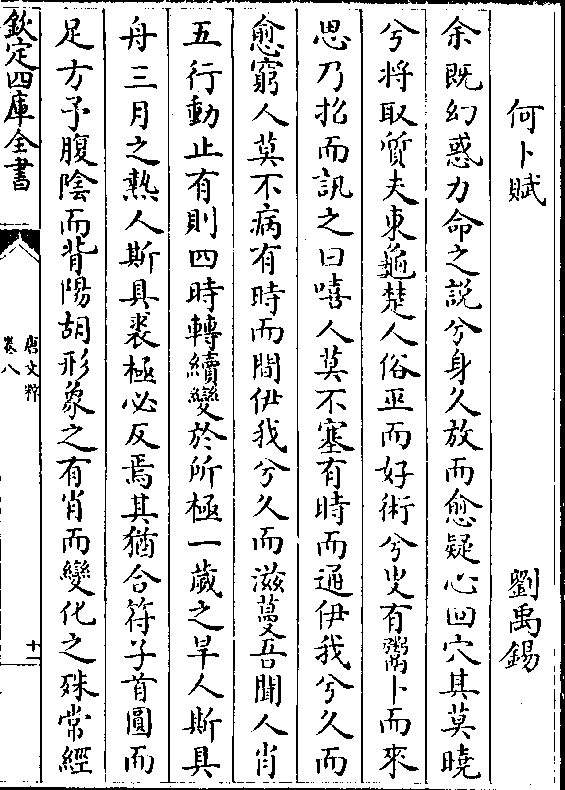 何卜賦　劉禹錫
余既幻惑力命之說兮身久放而愈疑心回穴其莫曉
兮將取質夫東龜楚人俗巫而好術兮叟有鬻卜而來
思乃招而訊之曰嘻人莫不塞有時而通伊我兮久而
愈窮人莫不病有時而間伊我兮久而滋蔓吾聞人肖
五行動止有則四時轉續變於所極一歲之旱人斯具
舟三月之熱人斯具裘極必反焉其猶合符予首圓而
足方予腹陰而背陽胡形象之有肖而變化之殊常經
欽定四庫全書
唐文粹
卷八
十一